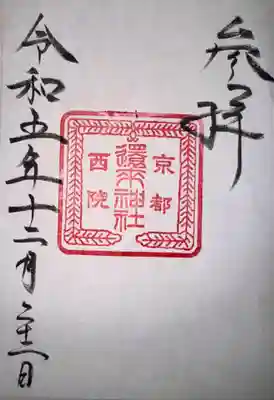 参拝
京都
還来神社
西院
令和五年十二月 日